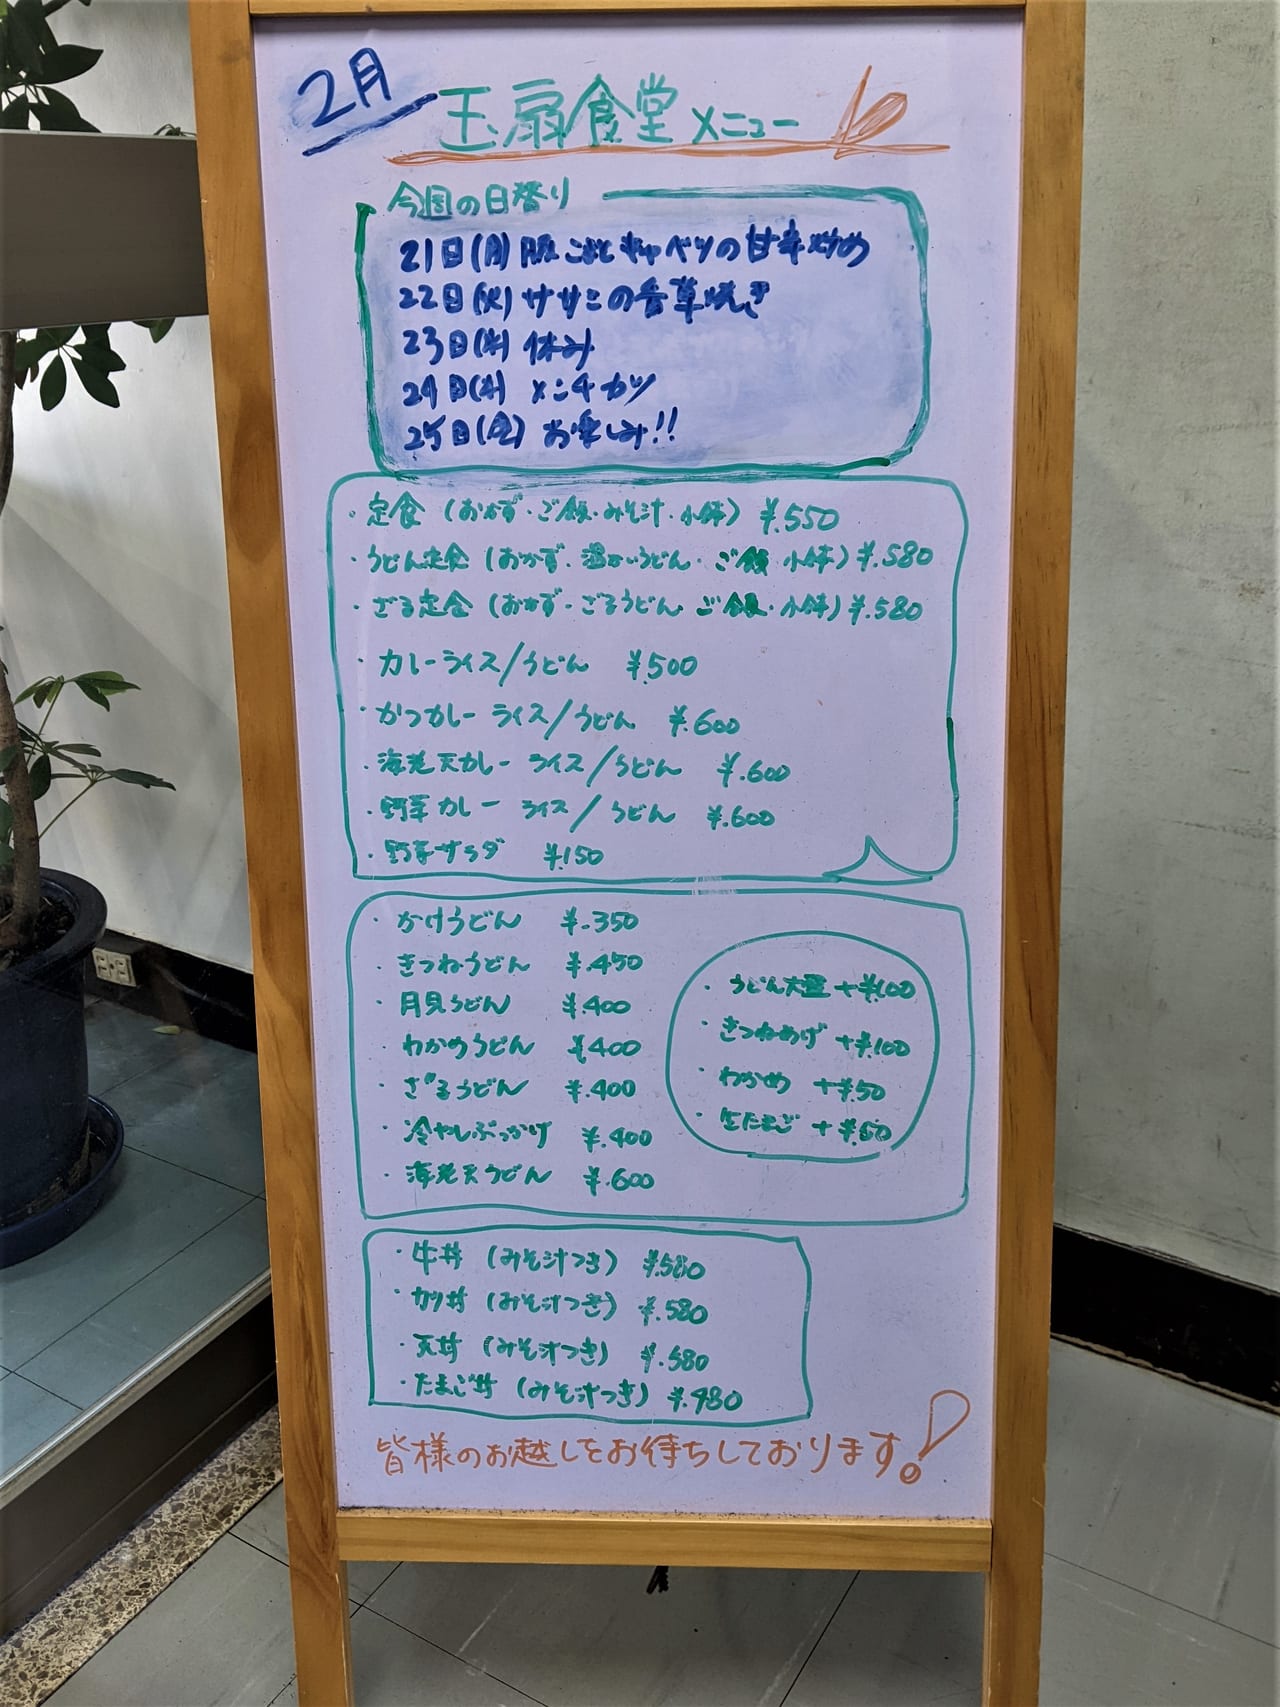 2月
玉扇食堂 メニュー
今週の日替り
21日(月) 豚こまとキャベツの甘辛炒め
22日(火) ササミの香草焼き
23日(水) 休み
24日(木) メンチカツ
25日(金) お楽しみ!!
・定食 (おかず・ご飯・みそ汁・小鉢) ¥.550
・うどん定食 (おかず・温かいうどん・ご飯 小鉢) ¥.580
・ざる定食 (おかず・ざるうどん ご飯・小鉢) ¥.580
・カレーライス/うどん ¥.500
・かつカレー ライス/うどん ¥.600
・海老天カレー ライス/うどん ¥.600
・野菜カレー ライス/うどん ¥.600
・野菜サラダ ¥.150
・かけうどん ¥.350
・きつねうどん ¥.450
・月見うどん ¥.400
・わかめうどん ¥.400
・ざるうどん ¥.400
・冷やしぶっかけ ¥.400
・海老天うどん ¥.600
・うどん大盛 +¥.100
・きつねあげ +¥.100
・わかめ +¥.50
・生たまご +¥.50
・牛丼 (みそ汁つき) ¥.580
・カツ丼 (みそ汁つき) ¥.580
・天丼 (みそ汁つき) ¥.580
・たまご丼 (みそ汁つき) ¥.480
皆様のお越しをお待ちしております!